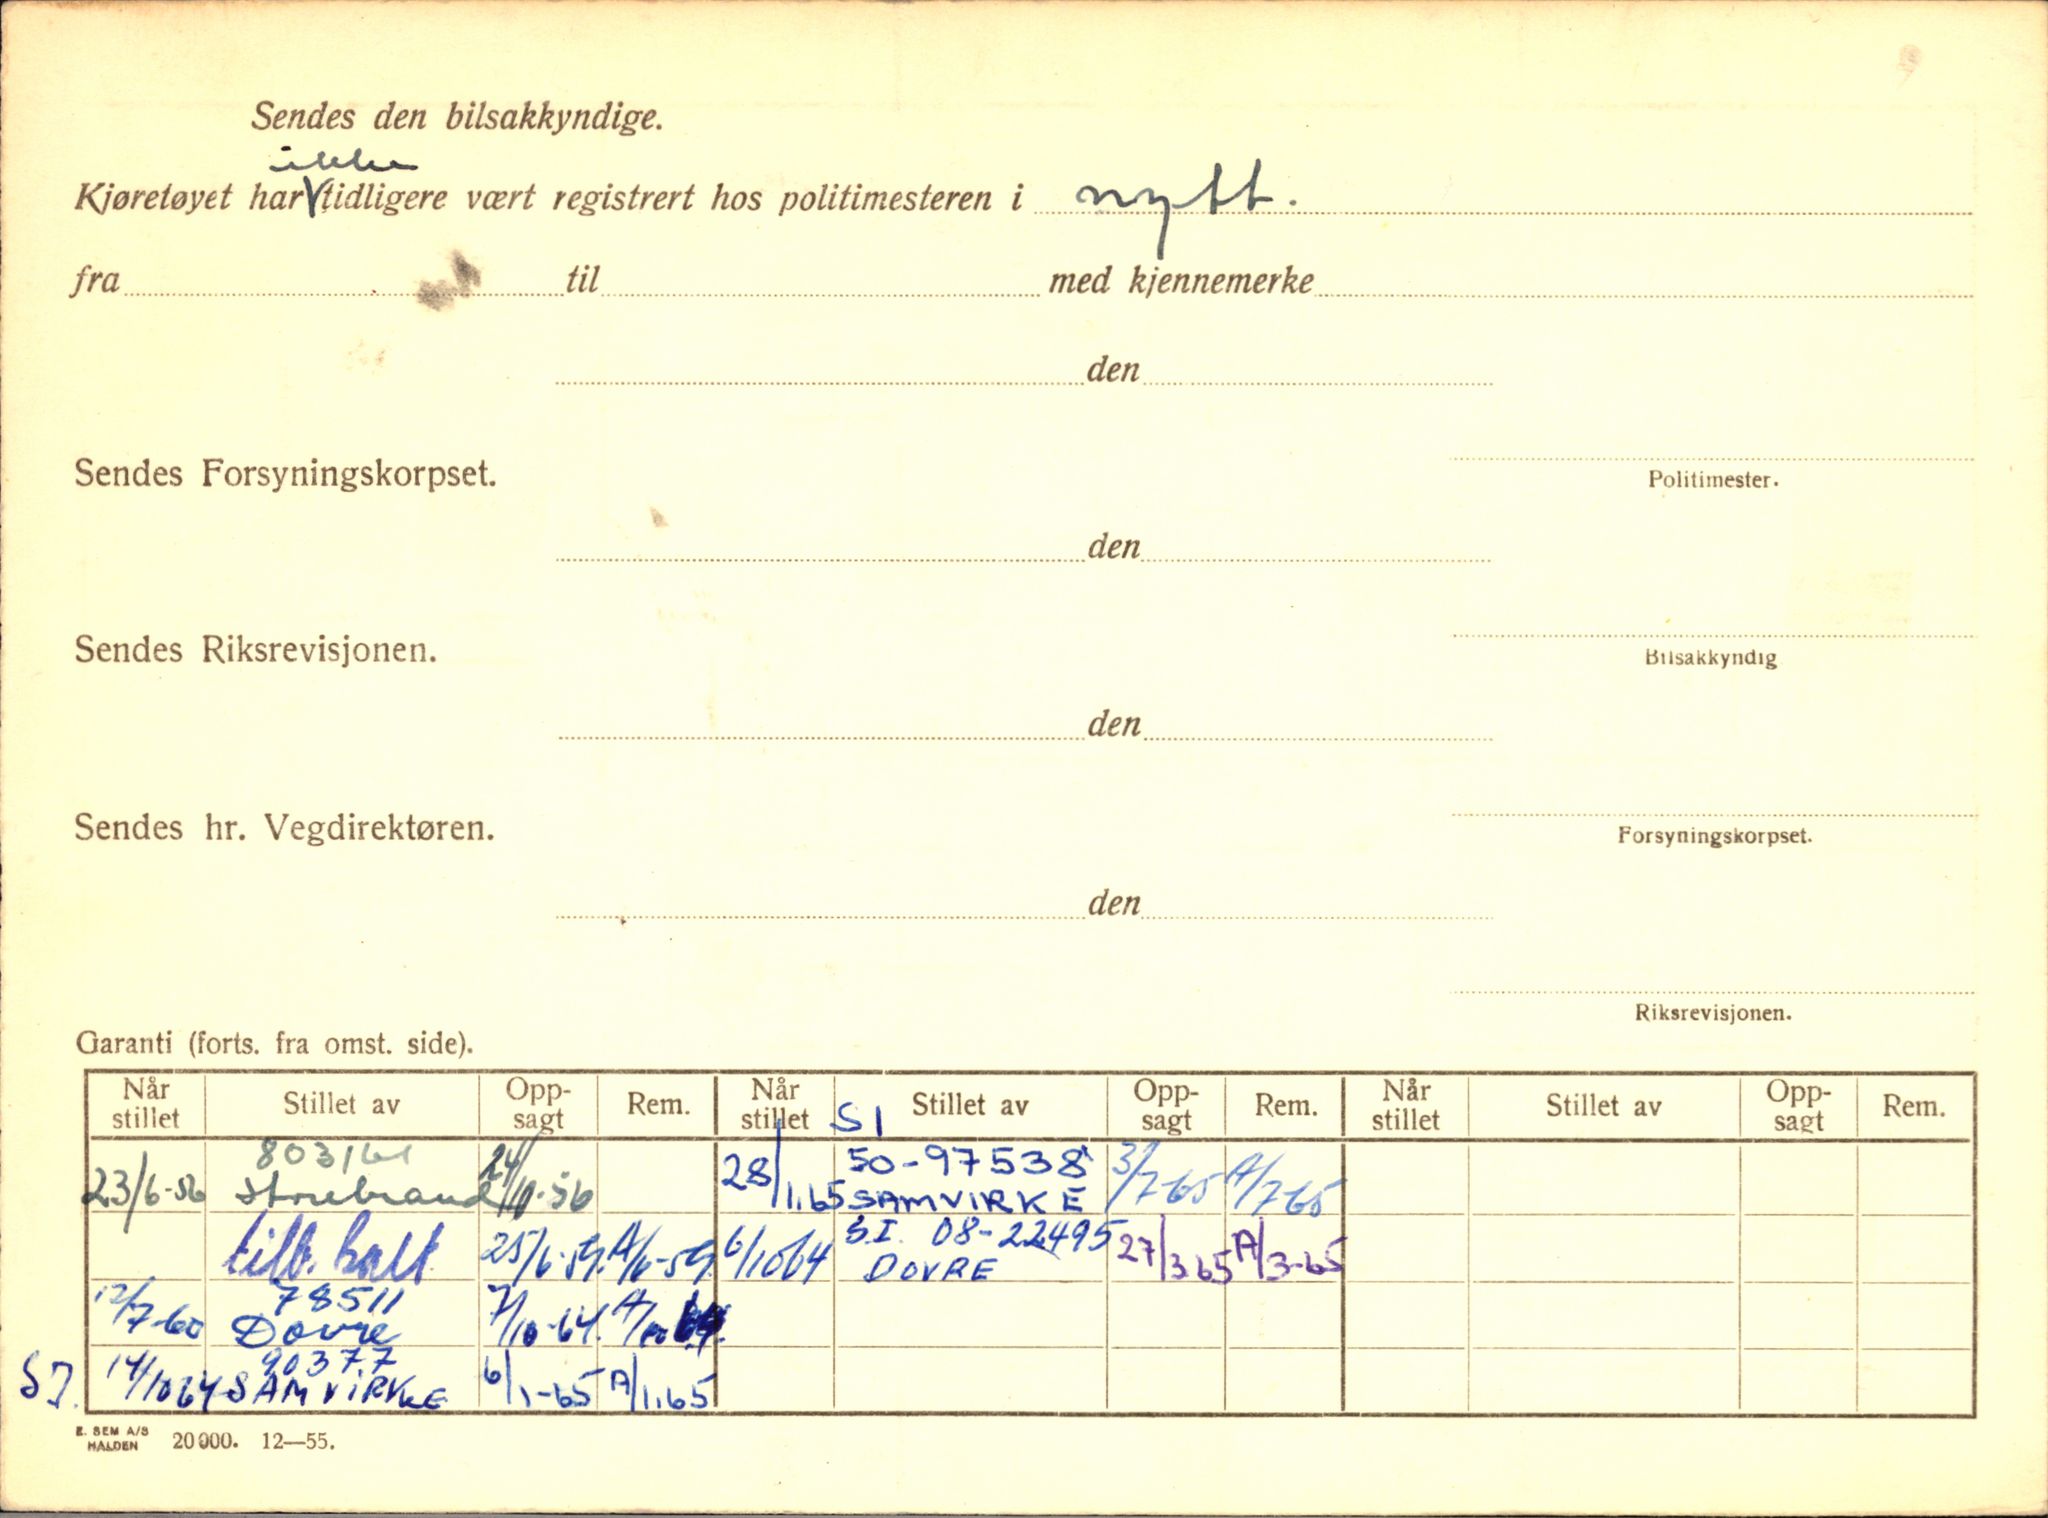 Sendes den bilsakkyndige.
ikke
Kjøretøyet har V tidligere vært registrert hos politimesteren i nytt.
fra til med kjennemerke
den
Sendes Forsyningskorpset.
Politimester.
den
Sendes Riksrevisjonen.
Bilsakkyndig
den
Sendes hr. Vegdirektøren.
Forsyningskorpset.
den
Riksrevisjonen.
Garanti (forts. fra omst. side).
Når stillet Stillet av Opp-sagt Rem. Når stillet Stillet av Opp-sagt Rem. Når stillet Stillet av Opp-sagt Rem.
SI
803161 50-97538
23/6-56 Storebrand 24/10-56 28/1.65 SAMVIRKE 3/7-65 A/7-65
tilb. kalt 25/6-59. A/6-59. 6/1064 S.I. 08-22495
DOVRE 27/3.65 A/3-65
12/7-60 78511
Dovre 7/10-64. A/10 64.
SI. 14/1064 90377
SAMVIRKE 6/1-65 A/1.65
E. SEM A/S
HALDEN 20000. 12—55.